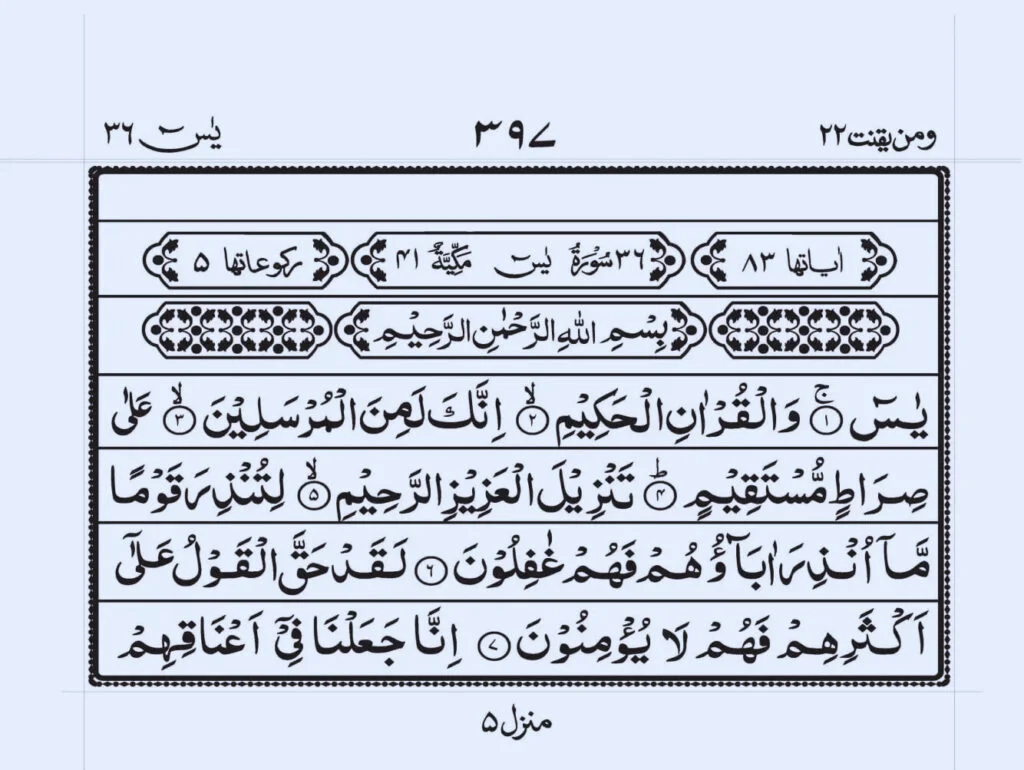 ومن يقنت ٢٢ ٣٩٧ يٰسٓ ٣٦
اياتها ٨٣ ٣٦ سُوْرَةُ يٰسٓ مَكِّيَّةٌ ٤١ ركوعاتها ٥
بِسْمِ اللّٰهِ الرَّحْمٰنِ الرَّحِيْمِ
يٰسٓ ۚ﴿١﴾ وَالْقُرْاٰنِ الْحَكِيْمِ ۙ﴿٢﴾ اِنَّكَ لَمِنَ الْمُرْسَلِيْنَ ۙ﴿٣﴾ عَلٰى
صِرَاطٍ مُّسْتَقِيْمٍ ؕ﴿٤﴾ تَنْزِيْلَ الْعَزِيْزِ الرَّحِيْمِ ۙ﴿٥﴾ لِتُنْذِرَ قَوْمًا
مَّاۤ اُنْذِرَ اٰبَآؤُهُمْ فَهُمْ غٰفِلُوْنَ ﴿٦﴾ لَقَدْ حَقَّ الْقَوْلُ عَلٰٓى
اَكْثَرِهِمْ فَهُمْ لَا يُؤْمِنُوْنَ ﴿٧﴾ اِنَّا جَعَلْنَا فِيْۤ اَعْنَاقِهِمْ
منزل ٥